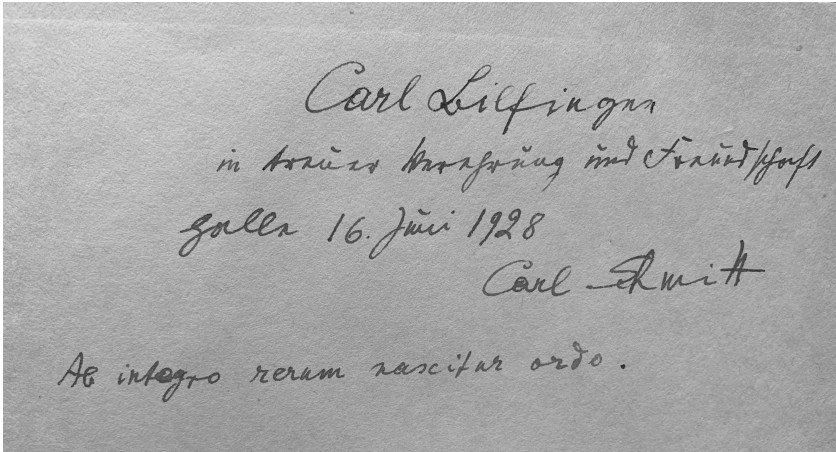 Carl Bilfinger
in treuer Verehrung und Freundschaft
Halle 16. Juni 1928
Carl Schmitt
Ab integro rerum nascitur ordo.